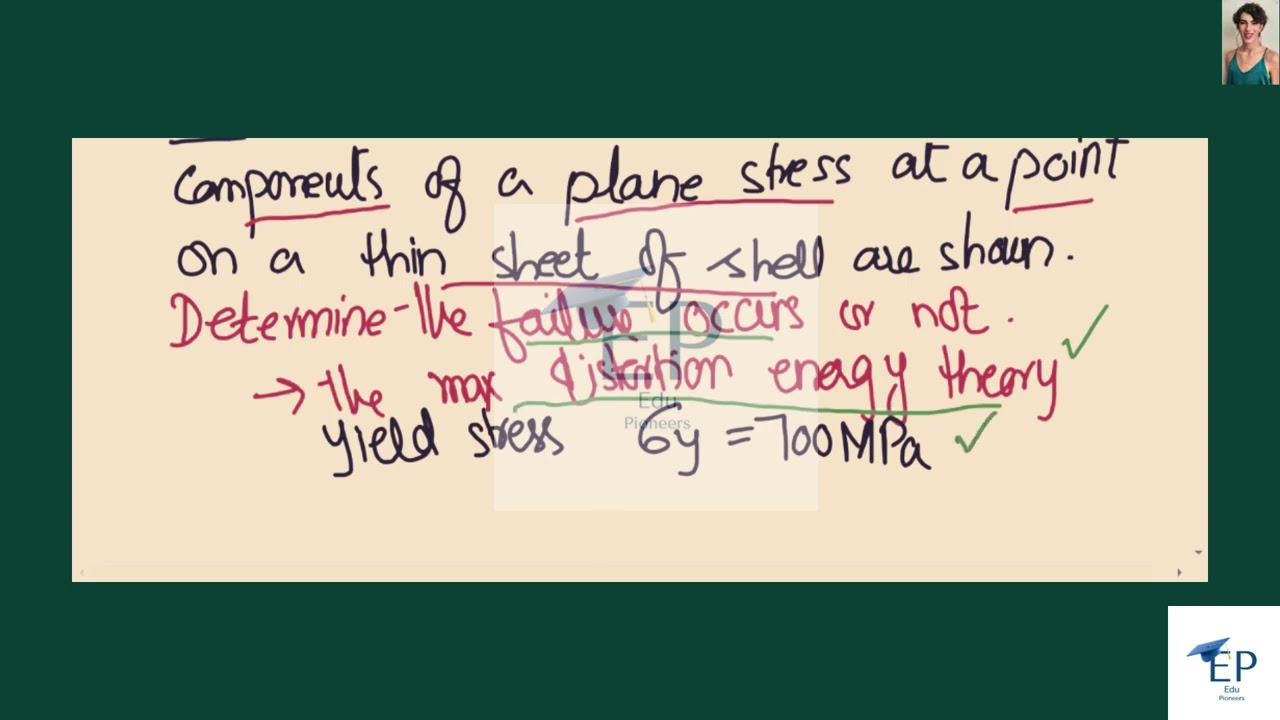 components of a plane stress at a point
on a thin sheet of shell are shown.
Determine the failure occurs or not.
→ the max distortion energy theory ✓
yield stress σy = 700 MPa ✓
EP
Edu
Pioneers
EP
Edu
Pioneers